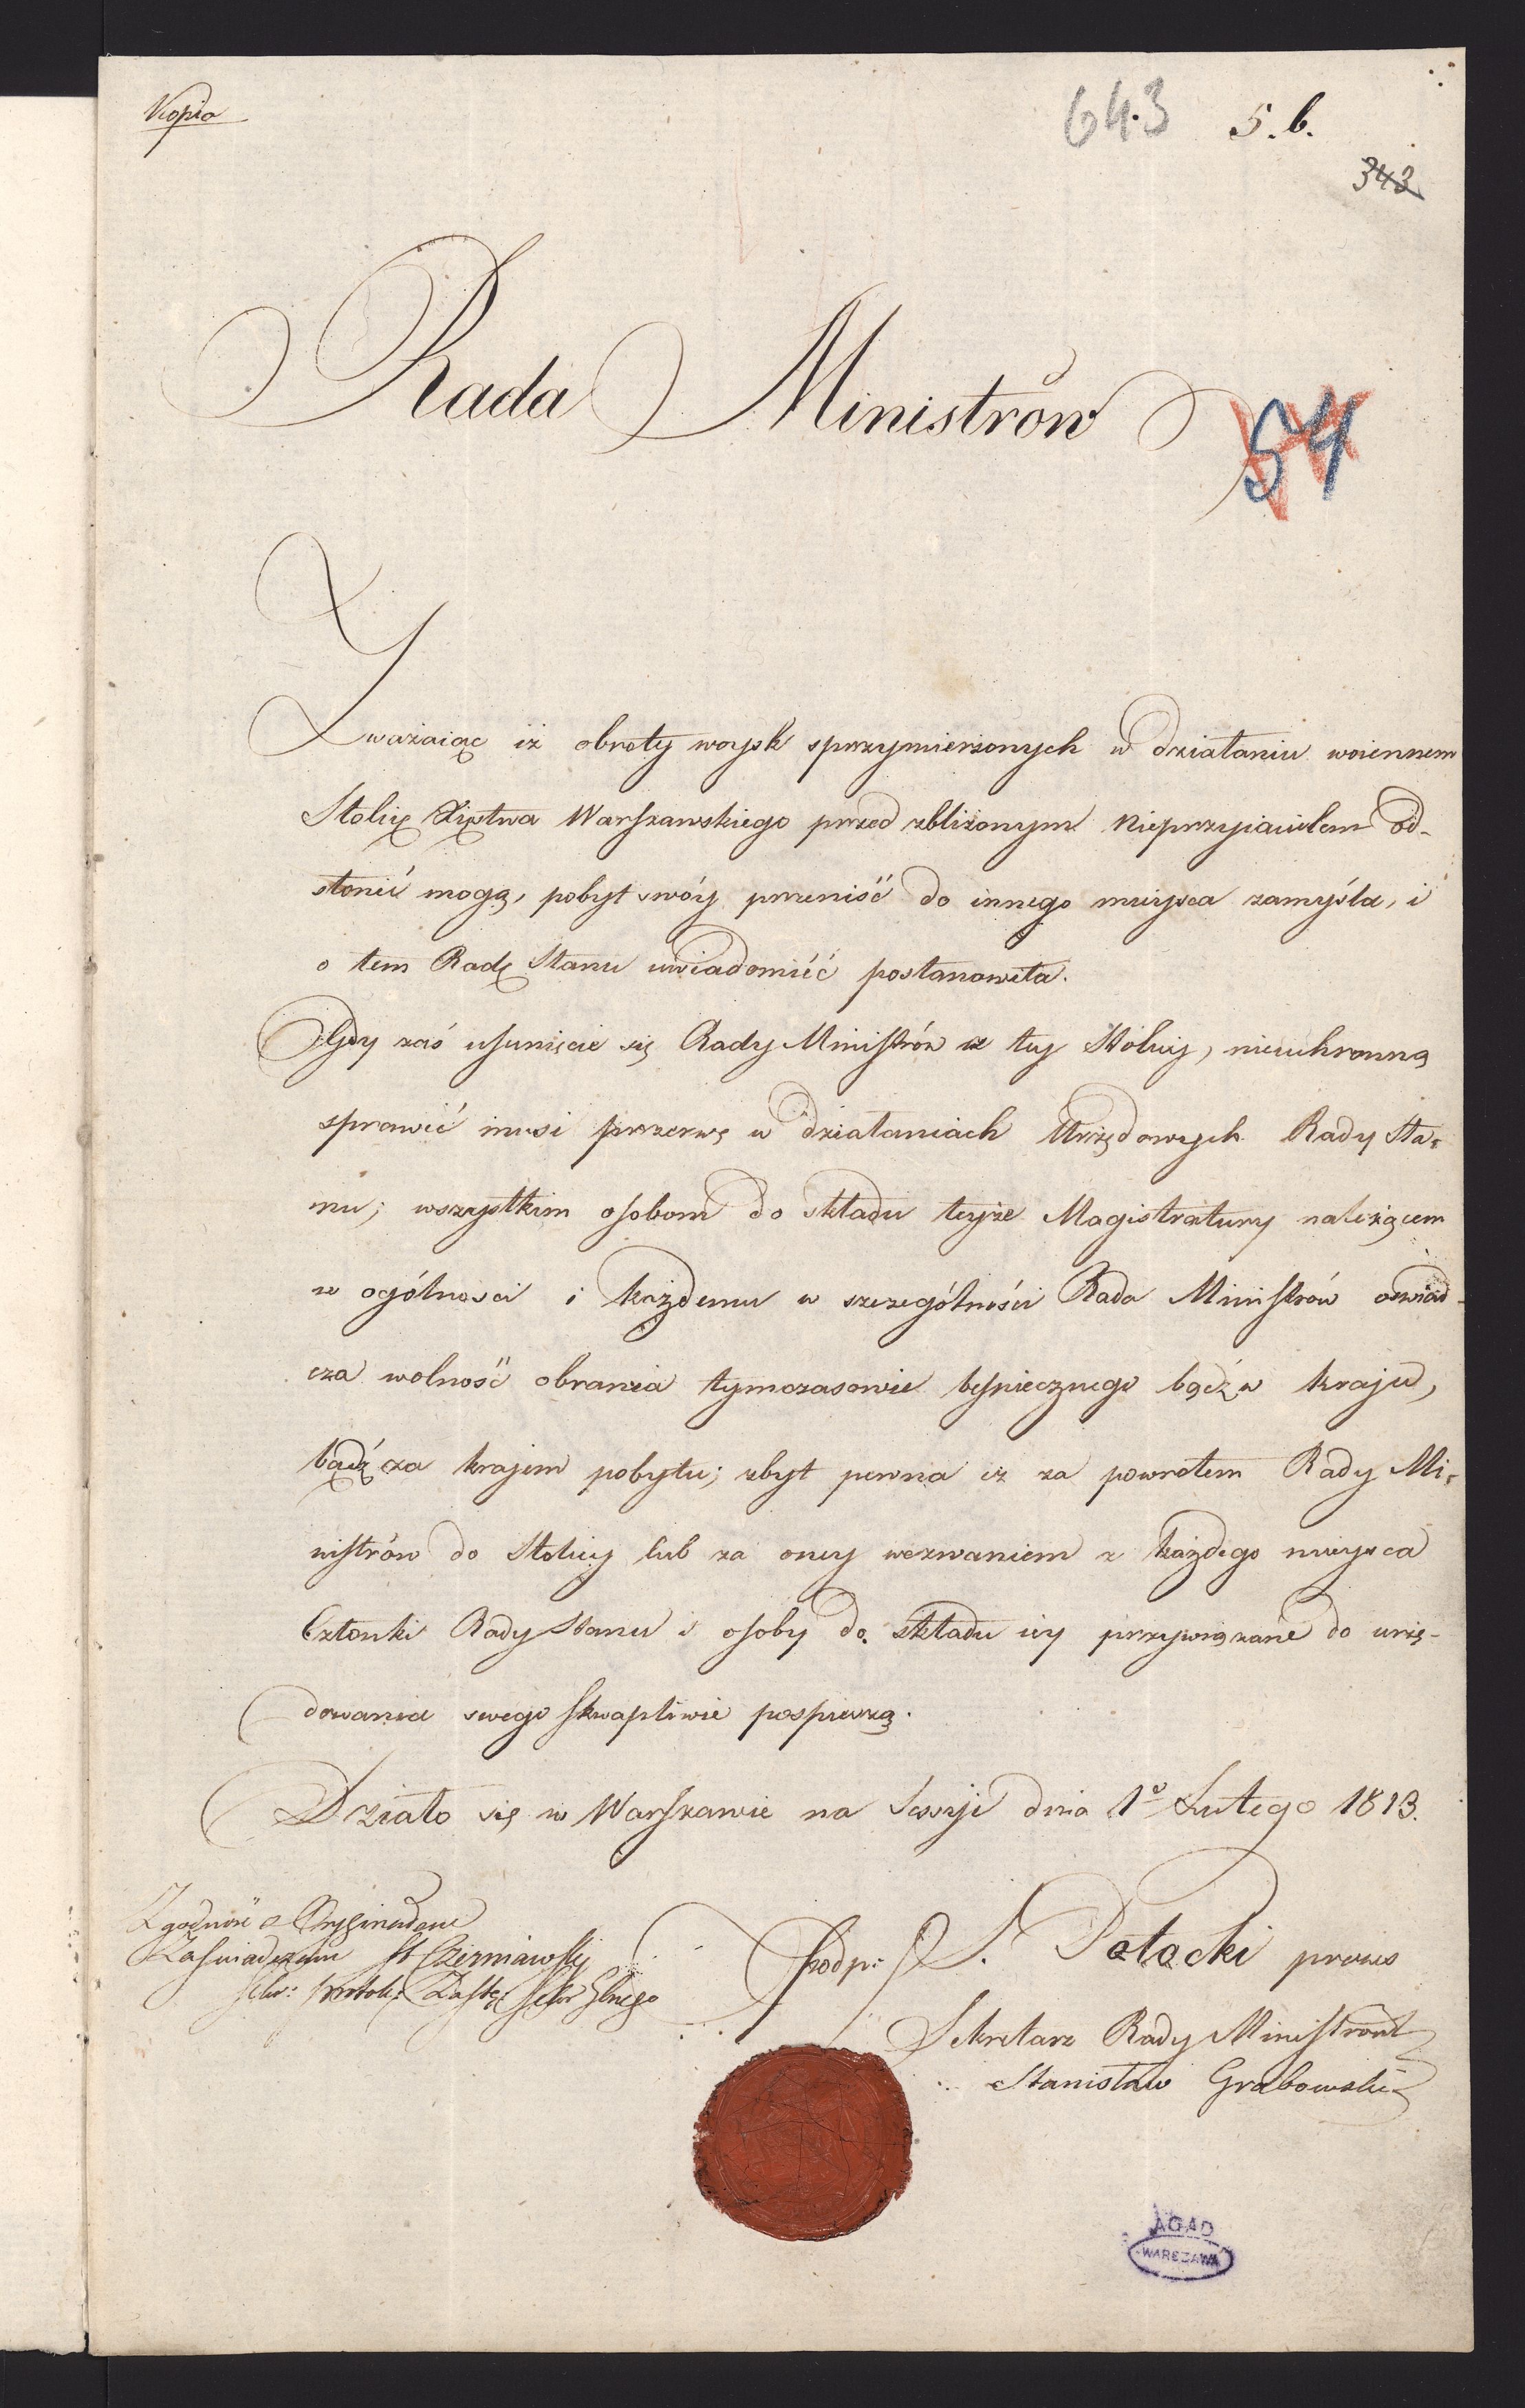 Kopia
643 5.b.
343
Rada Ministrów
54
Zważaiąc iż obroty woysk sprzymierzonych w działaniu woiennem
Stolicę Xięstwa Warszawskiego przed zbliżonym Nieprzyiacielem od-
słonić mogą, pobyt swóy przenieść do innego mieysca zamyśla, i
o tem Radę Stanu uwiadomić postanowiła.
Gdy zaś usunięcie się Rady Ministrów z tey Stolicy, nieuchronną
sprawić musi przerwę w działaniach Urzędowych Rady Sta-
nu; wszystkim osobom do składu teyże Magistratury należącem
w ogólności i każdemu w szczególności Rada Ministrów oświad-
cza wolność obrania tymczasowie bespiecznego bądź w kraju,
bądź za krajem pobytu; zbyt pewna iż za powrotem Rady Mi-
nistrów do Stolicy lub za oney wezwaniem z każdego mieysca
Członki Rady Stanu i osoby do składu iey przywiązane do urzę-
dowania swego skwapliwie pospieszą.
Działo się w Warszawie na Sessyi dnia 1º Lutego 1813.
Zgodność z Oryginałem
Zaświadczam St Czerniawski
Sekr: Protok: Zastę: Sekr Glnego
podp: S. Potocki prezes
Sekretarz Rady Ministrów
Stanisław Grabowski
AGAD
WARSZAWA